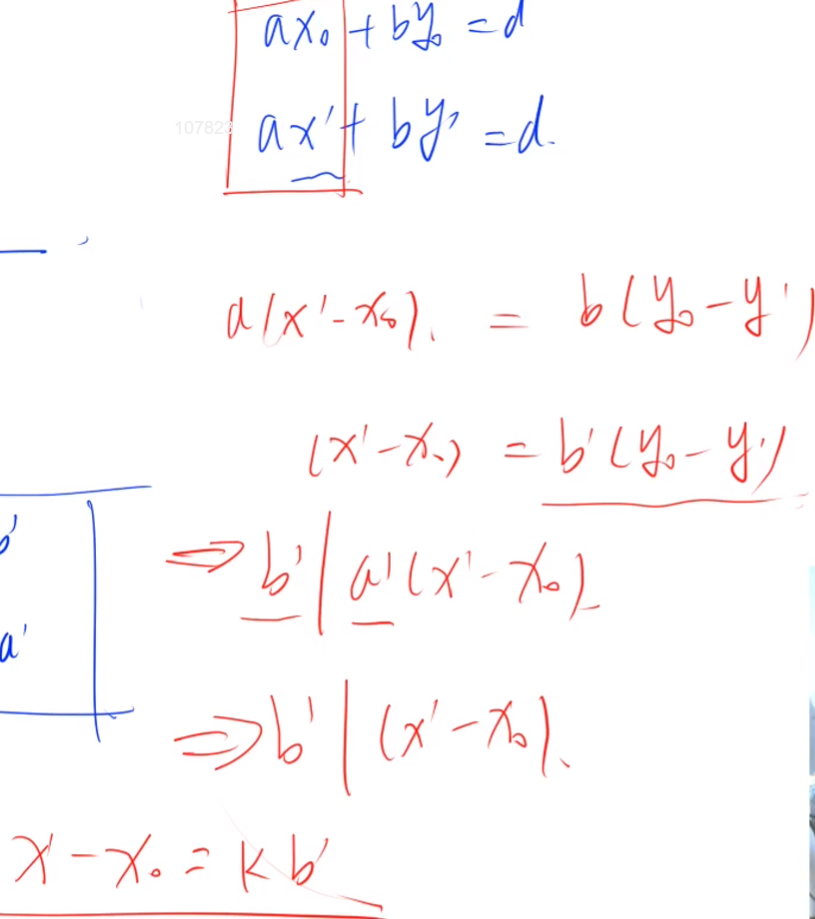 ax₀ + by₀ = d
107823
ax' + by' = d.
a(x'-x₀). = b(y₀-y')
(x'-x₀) = b'(y₀-y')
b'
⇒ b' | a'(x'-x₀)
a'
⇒ b' | (x'-x₀).
x'-x₀ = kb'